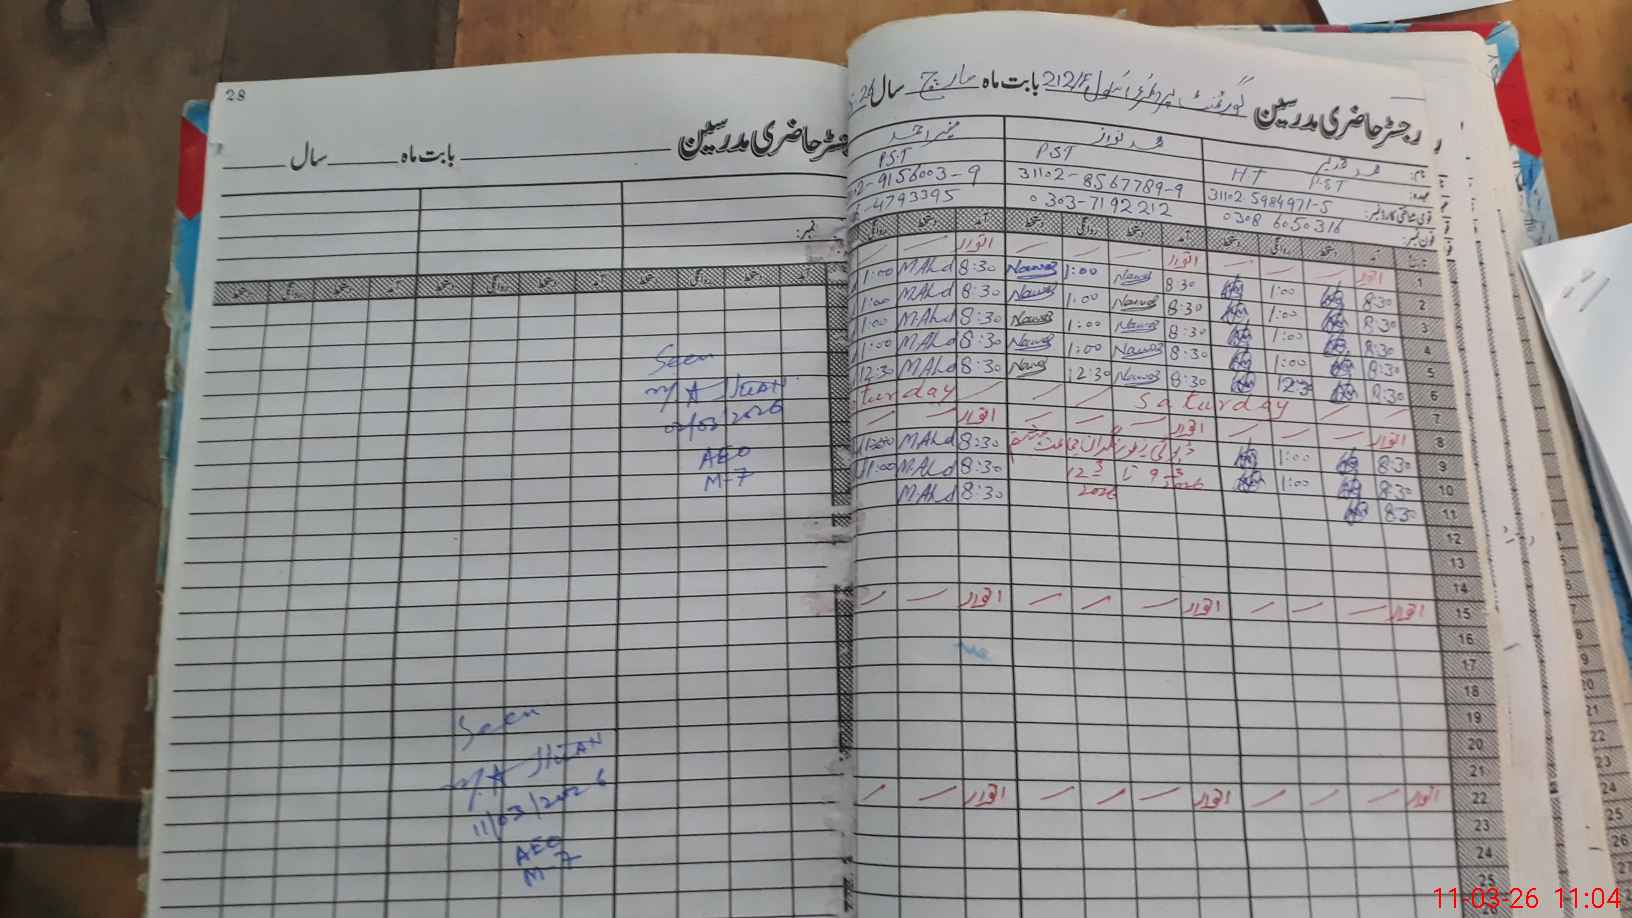 28
رجسٹر حاضری مدرسین
بابت ماہ
سال
نمبر:
آمد دستخط روانگی دستخط آمد دستخط روانگی دستخط
Seen
02/03/2026
AEO
M-7
Seen
11/03/2026
AEO
M-7
رجسٹر حاضری مدرسین گورنمنٹ پرائمری سکول 212/F بابت ماہ مارچ سال 26
نام: محمد ندیم محمد نواز منیر احمد
عہدہ: P.S.T H.T P.S.T P.S.T
قومی شناختی کارڈ نمبر: 31102-5984971-5 31102-8567789-9 2-9156003-9
فون نمبر: 0308 6050316 0303-7192212 -4793395
آمد دستخط روانگی دستخط آمد دستخط روانگی دستخط آمد دستخط روانگی
1 اتوار — — — اتوار — — — اتوار — —
2 8:30 1:00 8:30 Nawaz 1:00 Nawaz 8:30 MAhd 1:00
3 8:30 1:00 8:30 Nawaz 1:00 Nawaz 8:30 MAhd 1:00
4 8:30 1:00 8:30 Nawaz 1:00 Nawaz 8:30 MAhd 1:00
5 8:30 1:00 8:30 Nawaz 1:00 Nawaz 8:30 MAhd 1:00
6 8:30 12:30 8:30 Nawaz 12:30 Nawaz 8:30 MAhd 12:30
7 — — Saturday — — — turday
8 اتوار — — — اتوار — — — اتوار — —
9 8:30 1:00 8:30 MAhd
10 8:30 1:00 9 3 2026 تا 12 3 2026 8:30 MAhd 1:00
11 8:30 8:30 MAhd
12
13
14
15 اتوار — — — اتوار — — — اتوار — —
16
17
18
19
20
21
22 اتوار — — — اتوار — — — اتوار — —
23
24
25
11-03-26 11:04